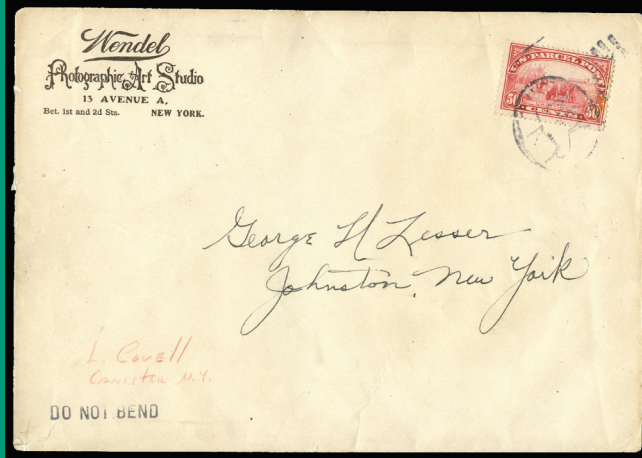 Wendel
Photographic Art Studio
13 AVENUE A,
Bet. 1st and 2d Sts. NEW YORK.
U.S. PARCEL POST
50 CENTS 50
George H Lesser
Johnston, New York
L. Covell
Canister N.Y.
DO NOT BEND